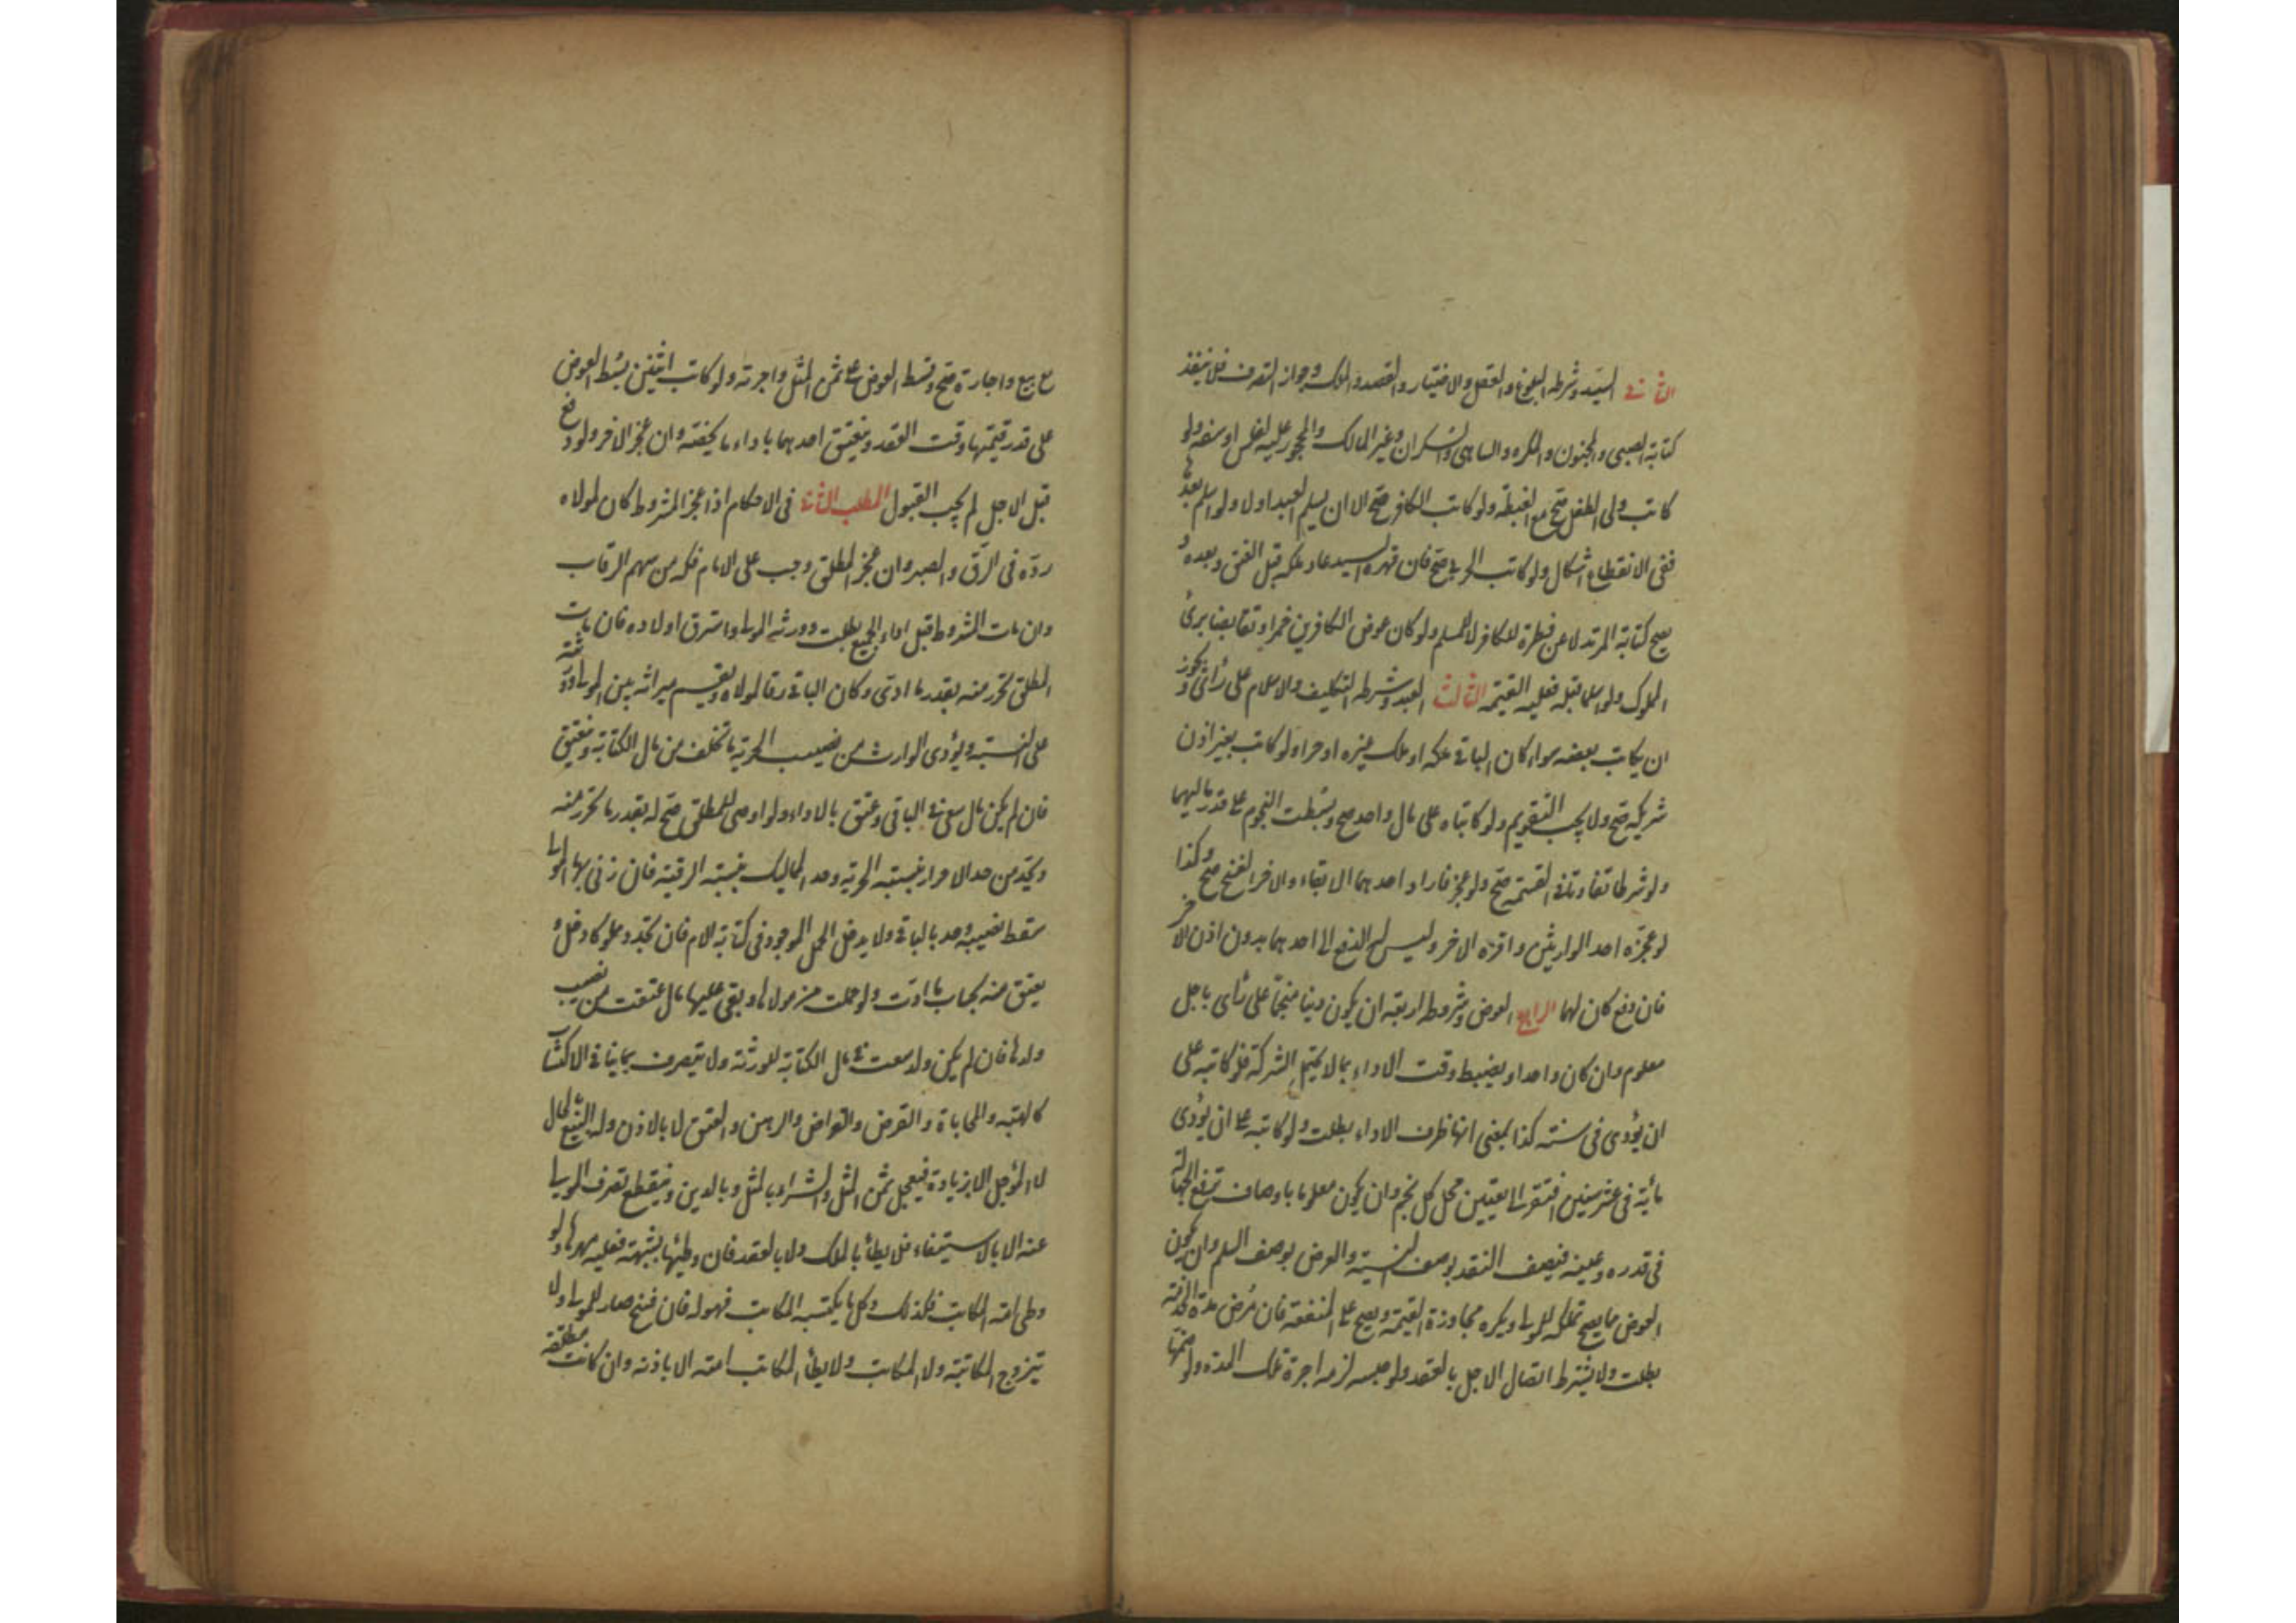 الثاني السيد وشرطه البلوغ والعقل والاختيار والقصد والملك وجواز التصرف فلا ينفذ
كتابة الصبي والمجنون والمكره والساهي والسكران وغير المالك والمحجور عليه لفلس او سفه ولو
كاتب ولي الطفل صح مع الغبطة ولو كاتب الكافر صح الا ان يسلم العبد اولا ولو اسلم بعدها
ففي الانقطاع اشكال ولو كاتب الحربي صح فان قهره السيد عاد ملكه قبل العتق وبعده و
يصح كتابة المرتد لا عن فطرة للكافر لا المسلم ولو كان عوض الكافرين خمرا وتقابضا برئ
المملوك ولو اسلما قبله فعليه القيمة الثالث العبد وشرطه التكليف والاسلام على رأي ويجوز
ان يكاتب بعضه سواء كان الباقي ملكه او ملك غيره او حرا ولو كاتب بغير اذن
شريكه صح ولا يجب التقويم ولو كاتباه على مال واحد صح وبسطت النجوم على قدر ماليهما
ولو شرطا تفاوتا في القسمة صح ولو عجز فاراد احدهما الابقاء والاخر الفسخ صح وكذا
لو عجزه احد الوارثين واقره الاخر وليس له الدفع الى احدهما بدون اذن الاخر
فان دفع كان لهما الرابع العوض وشروطه اربعة ان يكون دينا منجما على رأي باجل
معلوم وان كان واحدا ويضبط وقت الاداء بما لا يحتمل الشركة فلو كاتبه على
ان يؤدي في سنة كذا بمعنى انها ظرف الاداء بطلت ولو كاتبه على ان يؤدي
مأية في عشر سنين افتقر الى تعيين محل كل نجم وان يكون معلوما باوصاف ترفع الجهالة
في قدره وعينه فيصف النقد بوصف النسية والعرض بوصف السلم وان يكون
العوض مما يصح تملكه للمولى ويكره مجاوزة القيمة ويصح على المنفعة فان مرض مدة الخدمة
بطلت ولا يشترط اتصال الاجل بالعقد ولو حبسه لزمه اجرة تلك المدة ولو ضمها
مع بيع واجارة صح وقسط العوض على ثمن المثل واجرته ولو كاتب اثنين بسط العوض
على قدر قيمتهما وقت العقد وينعتق احدهما باداء ما يخصه وان عجز الاخر ولو دفع
قبل الاجل لم يجب القبول المطلب الثاني في الاحكام اذا عجز المشروط كان لمولاه
رده في الرق والصبر وان عجز المطلق وجب على الامام فكه من سهم الرقاب
وان مات المشروط قبل اداء الجميع بطلت وورثه المولى واسترق اولاده فان مات
المطلق تحرر منه بقدر ما ادى وكان الباقي رقا لمولاه ويقسم ميراثه بين المولى وورثته
على النسبة ويؤدي الوارث من نصيب الحرية ما تخلف من مال الكتابة وينعتق
فان لم يكن مال سعى في الباقي وعتق بالاداء ولو اوصى للمطلق صح له بقدر ما تحرر منه
ويحد من حد الاحرار بنسبة الحرية وحد المماليك بنسبة الرقية فان زنى بها المولى
سقط نصيبه وحد بالباقي ولا يدخل الحمل الموجود في كتابة الام فان تجدد مملوكا دخل و
يعتق منه بحساب ما ادت ولو حملت من مولاها وبقي عليها مال عتقت من نصيب
ولدها فان لم يكن ولد سعت في مال الكتابة للورثة ولا يتصرف بما ينافي الاكتساب
كالهبة والمحاباة والقرض والقراض والرهن والعتق لا بالاذن وله البيع بالحال
لا المؤجل الا بزيادة فيعجل ثمن المثل والشراء بالمثل وبالدين وينقطع تصرف المولى
عنه الا بالاستيفاء فلا يطأ بالملك ولا بالعقد فان وطئها بشبهة فعليه مهرها ولو
وطي امة المكاتب فكذلك وكل ما يكتسبه المكاتب فهو له فان فسخ صار للمولى ولا
تتزوج المكاتبة ولا المكاتب ولا يطأ المكاتب امته الا باذنه وان كانت مطلقة